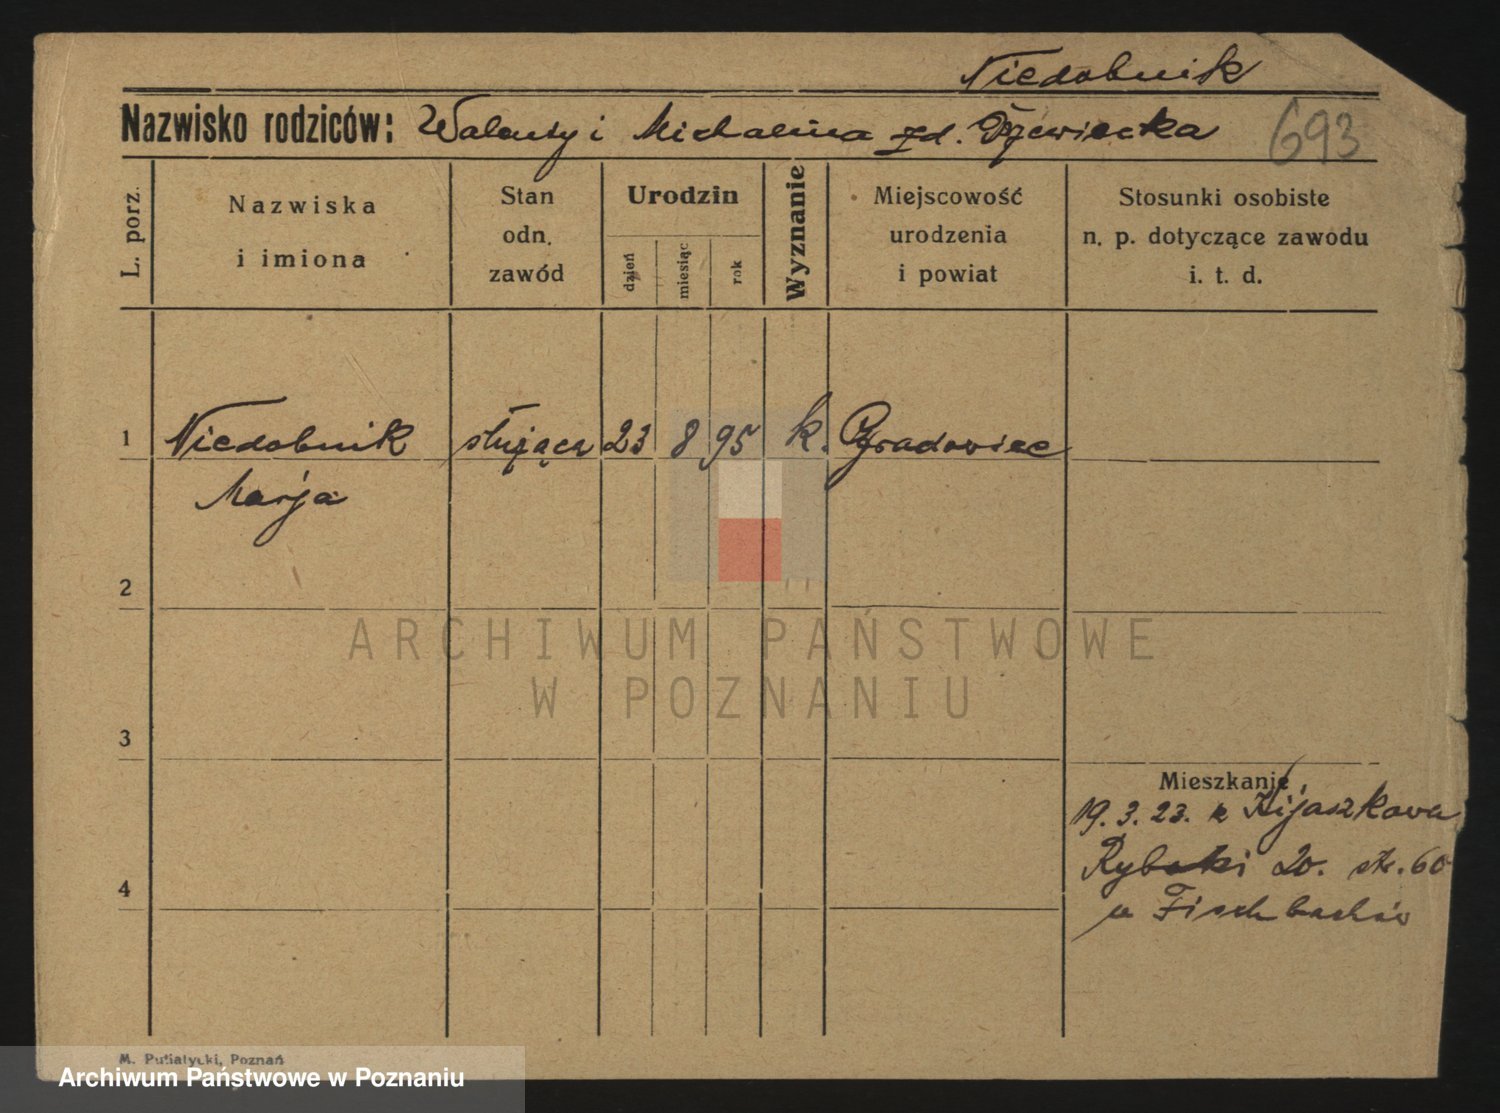 Niedobnik
Nazwisko rodziców: Walenty i Michalina zd.
693
L. porz.
Nazwiska
i imiona
Stan
odn.
zawód
Urodzin
dzień
miesiąc
rok
Wyznanie
Miejscowość
urodzenia
i powiat
Stosunki osobiste
n. p. dotyczące zawodu
i. t. d.
1 Niedobnik służąca 23 8 95 k. Gradowiec
Marja
2
ARCHIWUM PAŃSTWOWE
W POZNANIU
3
Mieszkanie
19.3.23. z Kijaszkowa
Rybaki 20. str. 60
u Fischbachów
4
M. Putiatycki, Poznań
Archiwum Państwowe w Poznaniu